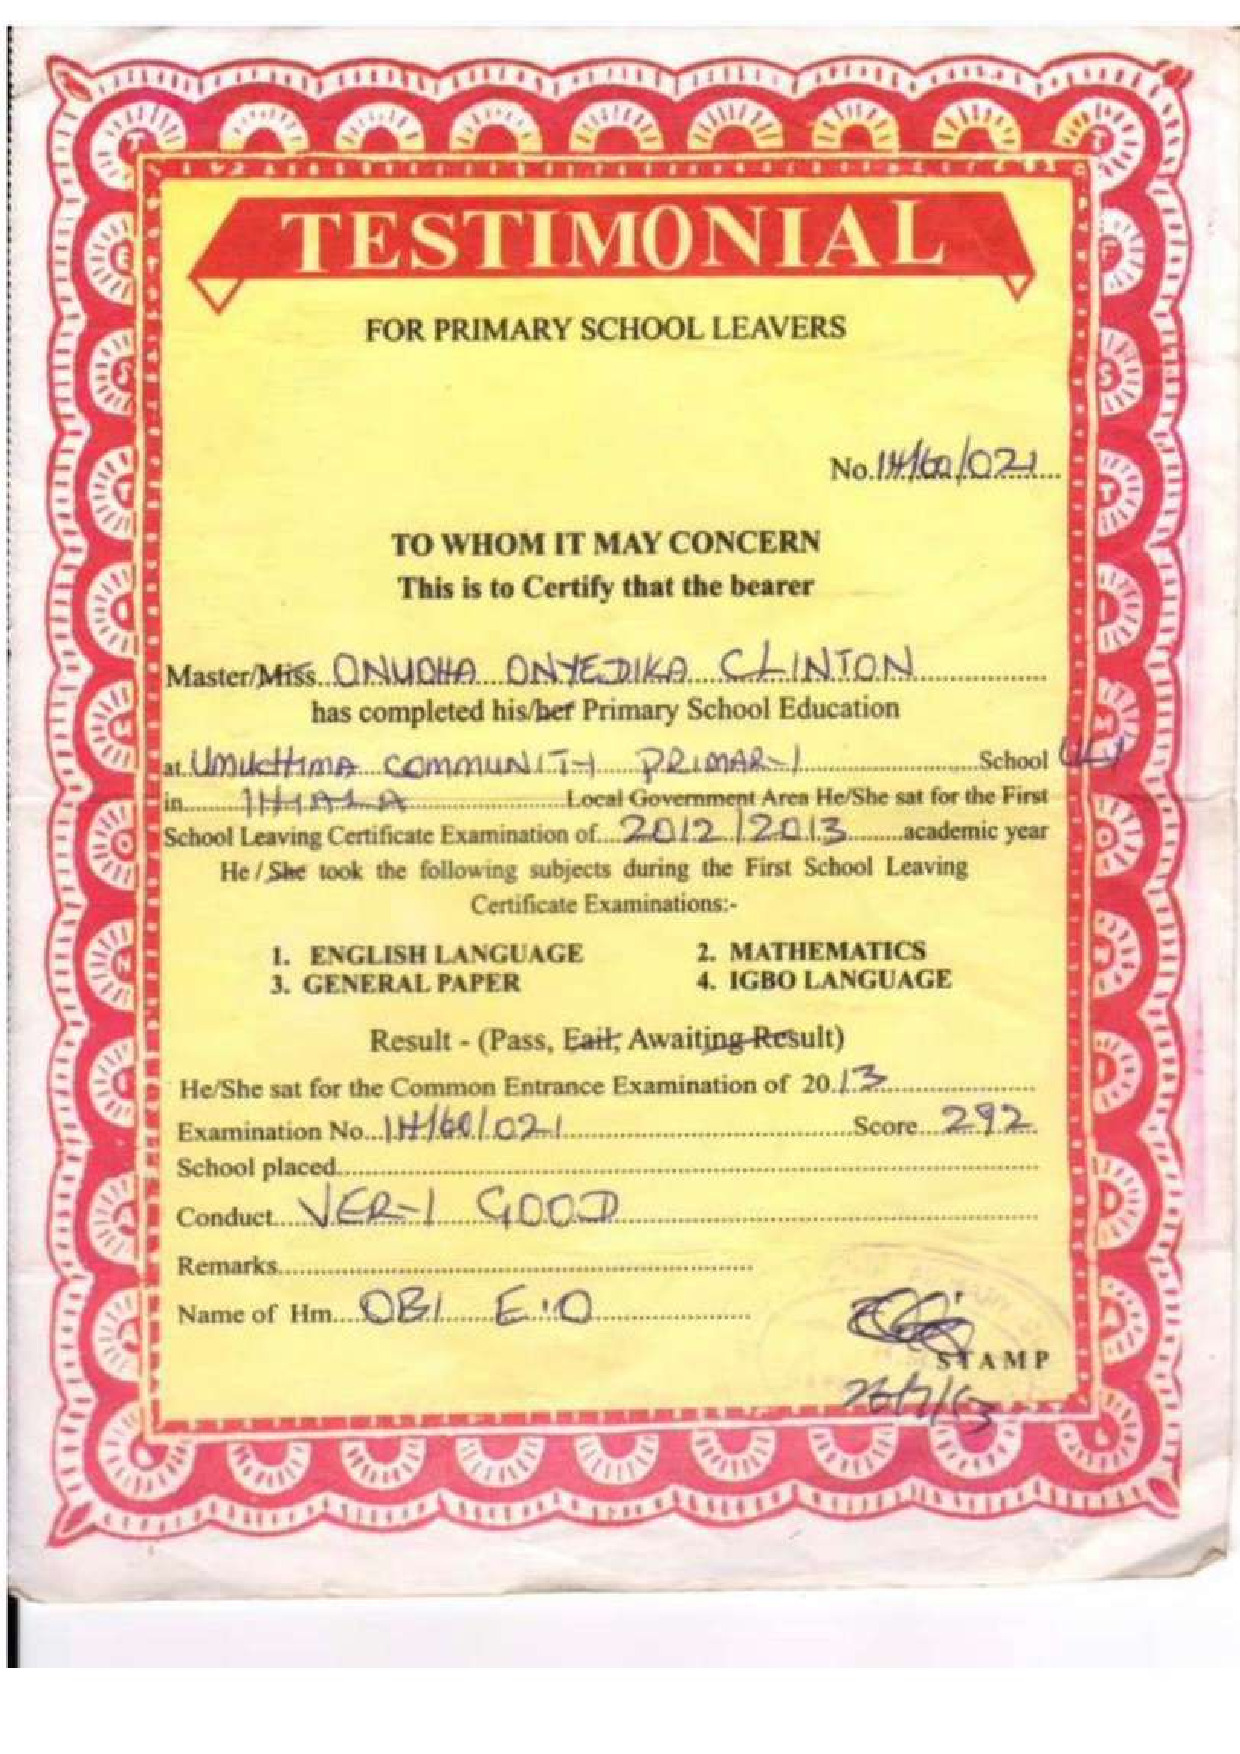 TESTIMONIAL
FOR PRIMARY SCHOOL LEAVERS
No. IH/60/021
TO WHOM IT MAY CONCERN
This is to Certify that the bearer
Master/Miss ONUOHA ONYEDIKA CLINTON
has completed his/her Primary School Education
at UMUCHIMA COMMUNITY PRIMARY School ULI
in IHIALA Local Government Area He/She sat for the First
School Leaving Certificate Examination of 2012/2013 academic year
He / She took the following subjects during the First School Leaving
Certificate Examinations:-
1. ENGLISH LANGUAGE 2. MATHEMATICS
3. GENERAL PAPER 4. IGBO LANGUAGE
Result - (Pass, Fail, Awaiting Result)
He/She sat for the Common Entrance Examination of 2013
Examination No. IH/60/021 Score 292
School placed
Conduct VERY GOOD
Remarks
Name of Hm OBI E.O
STAMP
26/7/13